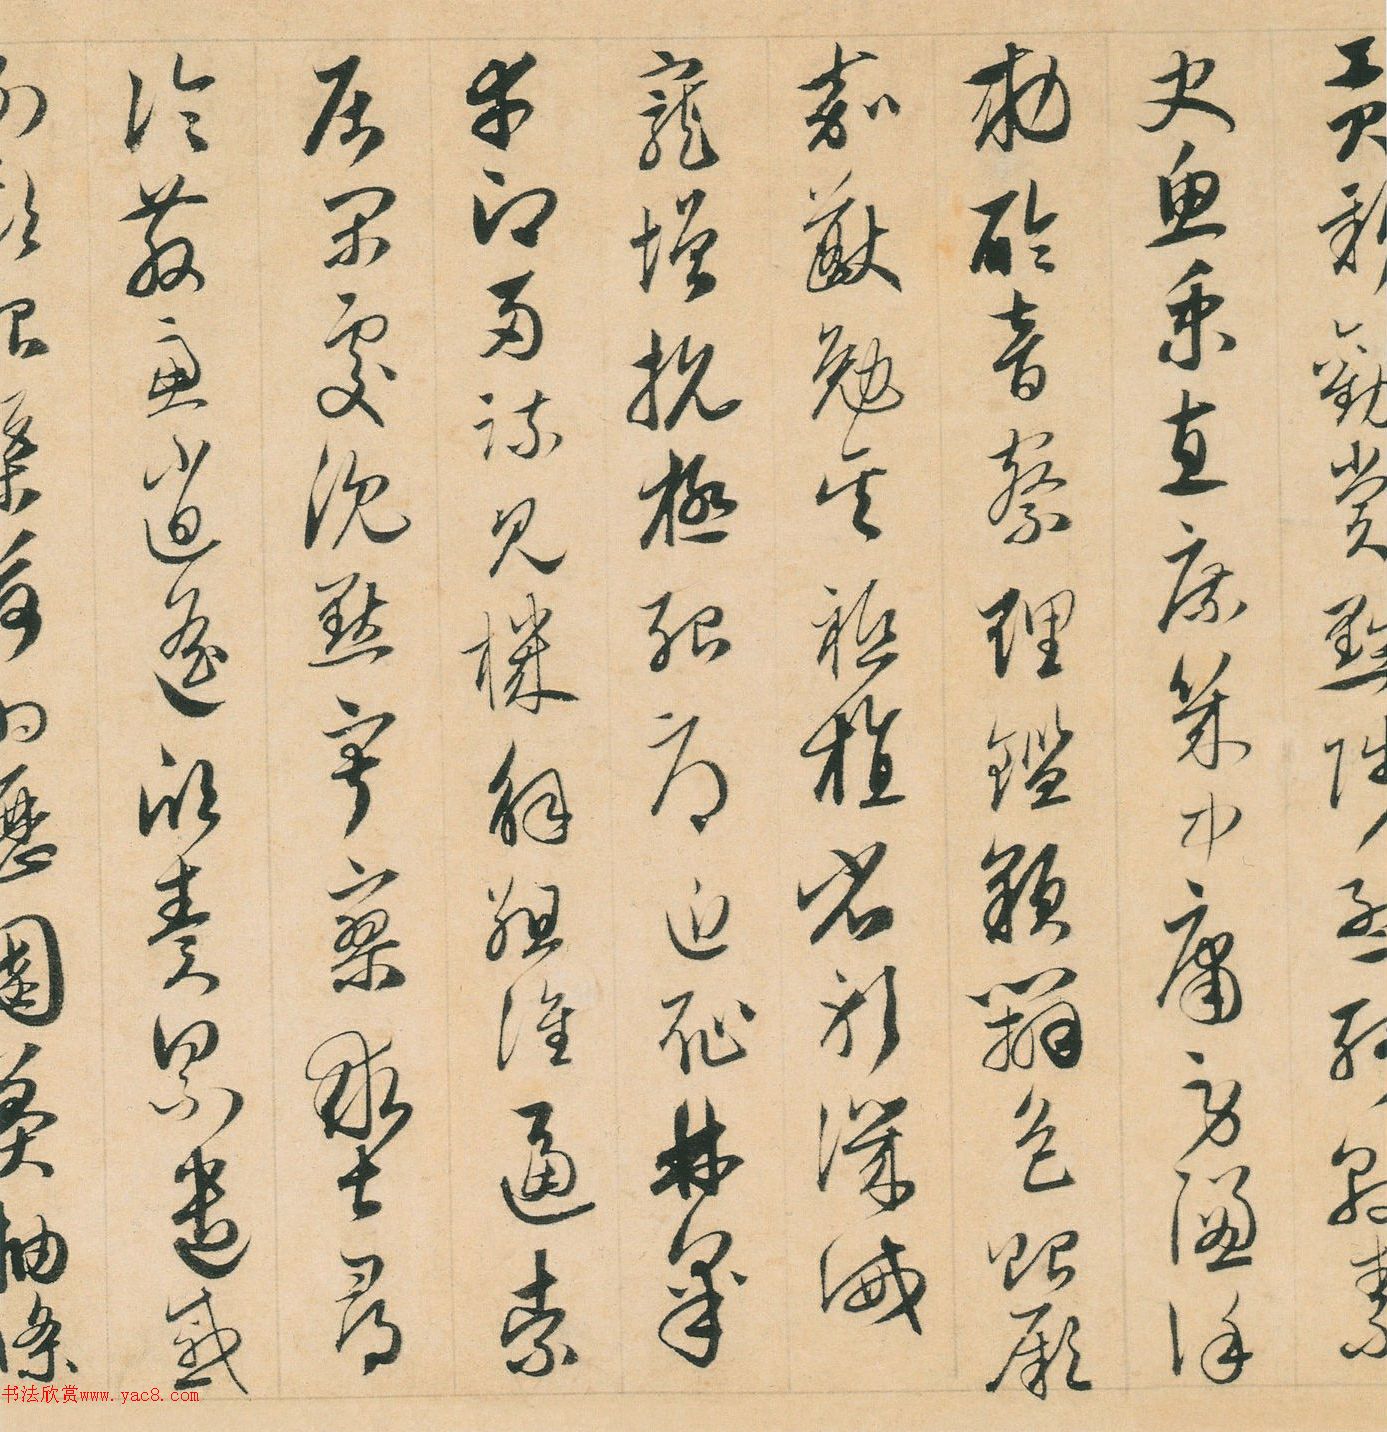 貢新勸賞黜陟孟軻敦素
史魚秉直庶幾中庸勞謙謹
勅聆音察理鑑貌辨色貽厥
嘉猷勉其祗植省躬譏誡
寵增抗極殆辱近恥林皋
幸即兩疏見機解組誰逼索
居閑處沉默寂寥求古尋
論散慮逍遙欣奏累遣慼
謝歡招渠荷的歷園莽抽條
书法欣赏www.yac8.com